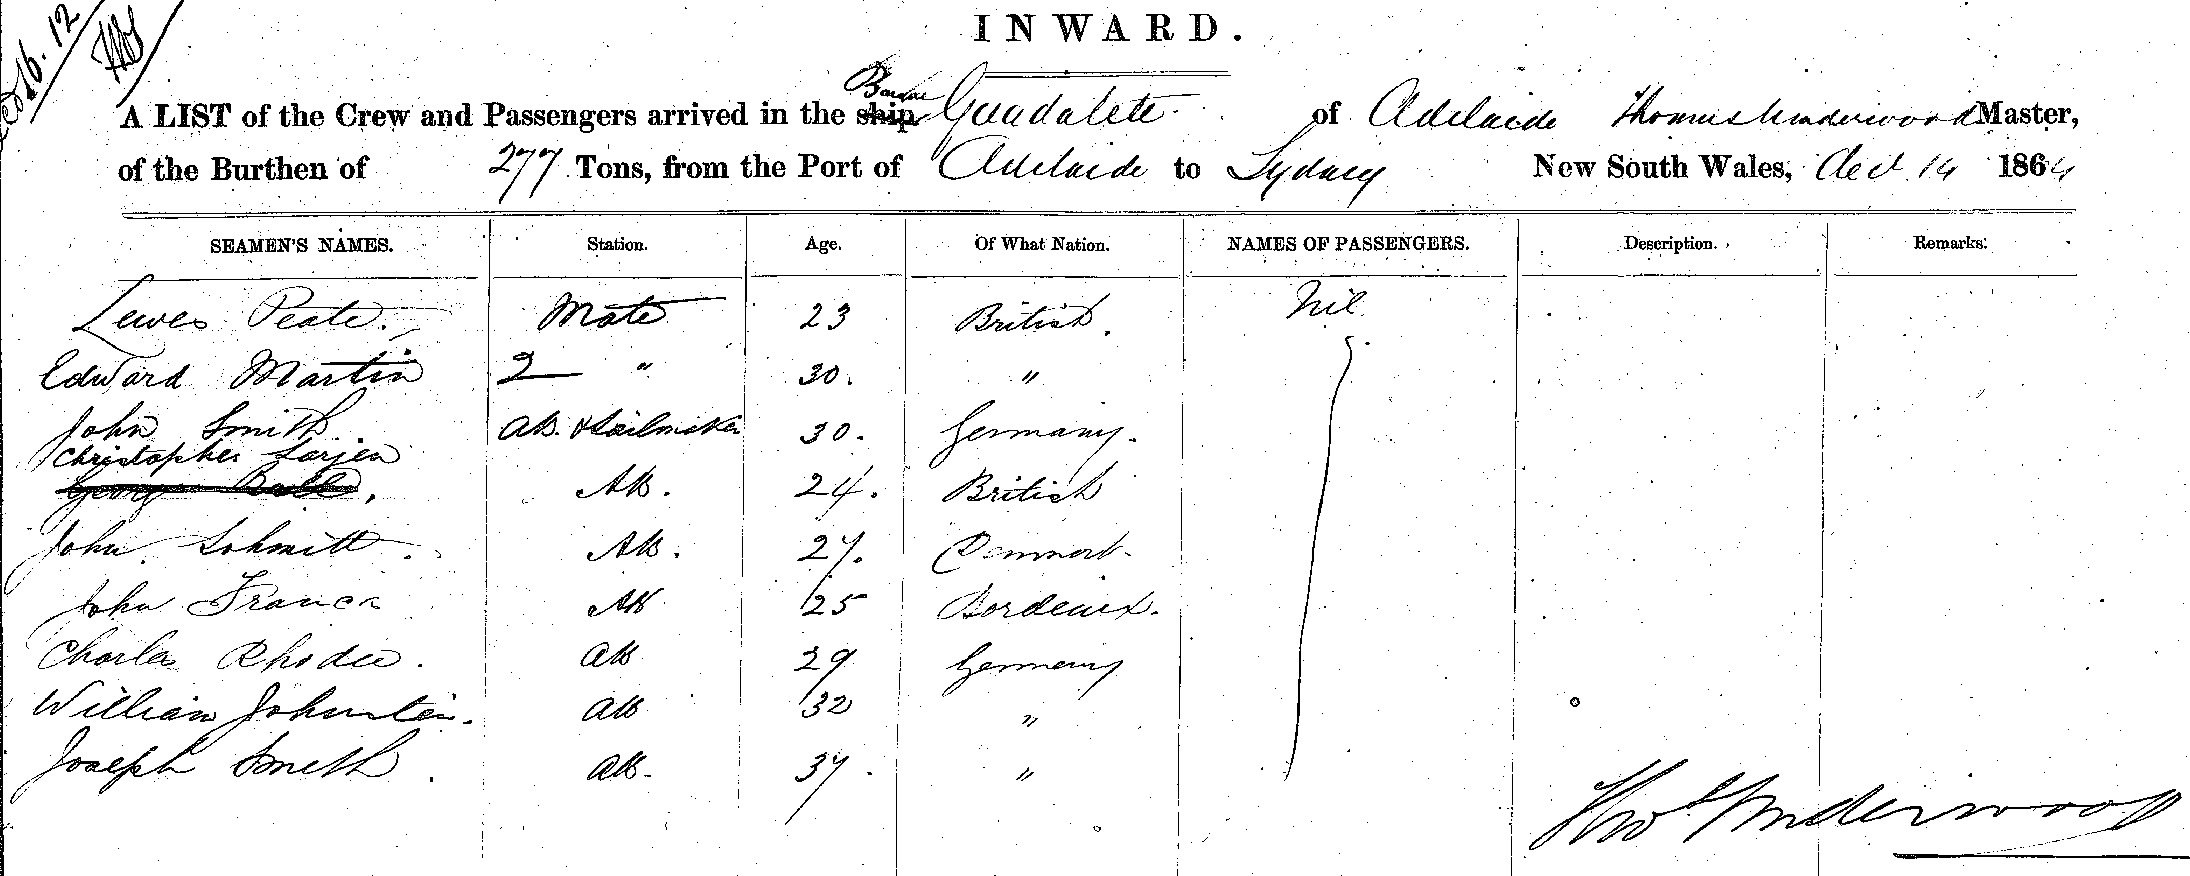 16. 12
INWARD.
Barque
A LIST of the Crew and Passengers arrived in the ship Guadalete of Adelaide Thomas Underwood Master,
of the Burthen of 277 Tons, from the Port of Adelaide to Sydney New South Wales, Oct 14 1864
SEAMEN'S NAMES. Station. Age. Of What Nation. NAMES OF PASSENGERS. Description. Remarks.
Lewes Peate. Mate 23 British. Nil
Edward Martin 2 " 30. "
John Smith. AB. & Sailmaker 30. Germany.
Christopher Sarjen
George AB. 24. British
John Schmitt. AB. 27. Denmark
John Franca AB 25 Bordeaux.
Charles Rhodee. AB 29 Germany
William Johnstein. AB 32 "
Joseph Smith. AB. 37. "
Thos Underwood